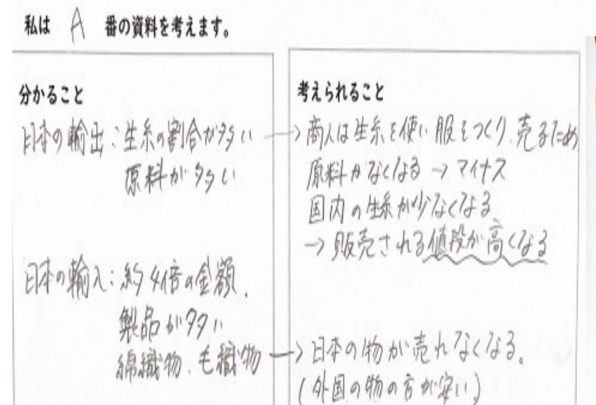 私は A 番の資料を考えます。
分かること
日本の輸出：生糸の割合が多い
原料が多い
日本の輸入：約4倍の金額、
製品が多い
綿織物、毛織物
考えられること
→商人は生糸を使い服をつくり、売るため
原料がなくなる→マイナス
国内の生糸が少なくなる
→販売される値段が高くなる
→日本の物が売れなくなる。
(外国の物の方が安い)